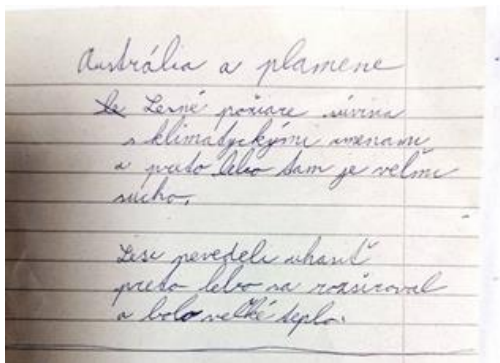 Austrália a plamene
Lesné požiare súvisia
s klimatyckými zmenami
a preto lebo tam je velmi
sucho.
Lesi nevedeli uhasiť
preto lebo sa rozširoval
a bolo velké teplo.